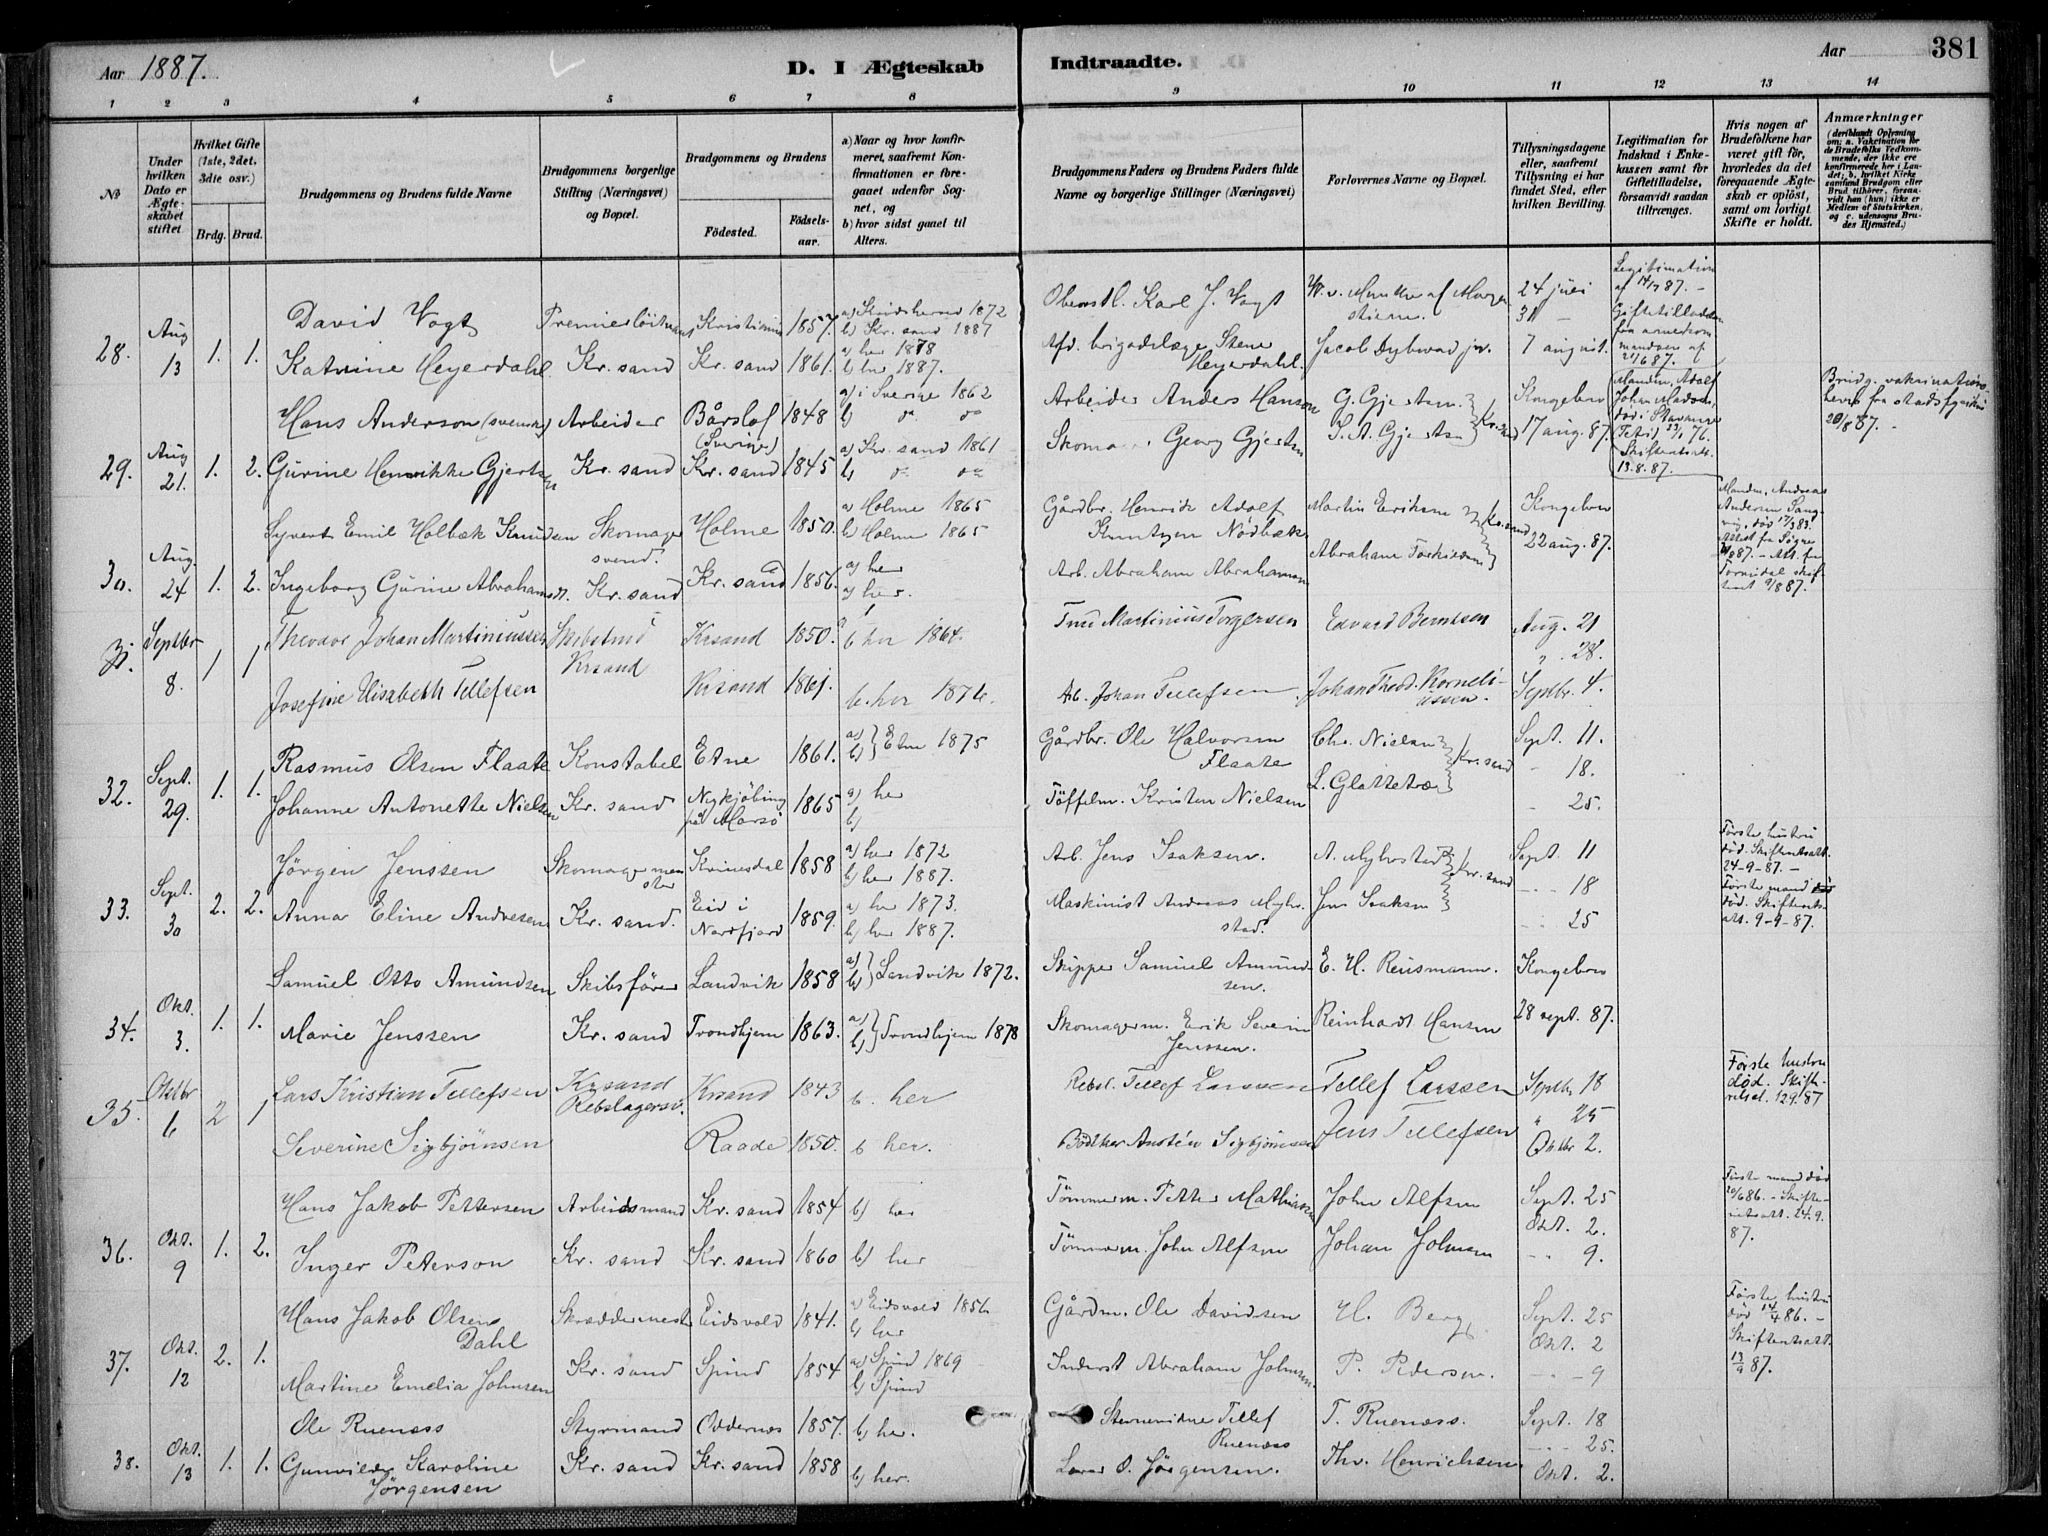 Aar 1887.
D. I Ægteskab
Indtraadte.
Aar
381
1 2 3 4 5 6 7 8 9 10 11 12 13 14
№
Under hvilken Dato er Ægteskabet stiftet
Hvilket Gifte (1ste, 2det, 3die osv.)
Brdg. Brud.
Brudgommens og Brudens fulde Navne
Brudgommens borgerlige Stilling (Næringsvei) og Bopæl.
Brudgommens og Brudens
Födested.
Födselsaar.
a) Naar og hvor konfirmeret, saafremt Konfirmationen er foregaaet udenfor Sognet, og
b) hvor sidst gaaet til Alters.
Brudgommens Faders og Brudens Faders fulde Navne og borgerlige Stillinger (Næringsvei)
Forlovernes Navne og Bopæl.
Tillysningsdagene eller, saafremt Tillysning ei har fundet Sted, efter hvilken Bevilling.
Legitimation for Indskud i Enkekassen samt for Giftetilladelse, forsaavidt saadan tiltrænges.
Hvis nogen af Brudefolkene har været gift för, hvorledes da det foregaaende Ægteskab er oplöst, samt om lovligt Skifte er holdt.
Anmærkninger
(deriblandt Oplysning om: a. Vakcination for de Brudefolks Vedkommende, der ikke ere konfirmerede her i Landet; b. hvilket Kirkesamfund Brudgom eller Brud tilhörer, forsaavidt han (hun) ikke er Medlem af Statskirken, og c. udensogns Brudes Hjemsted.)
28. Aug 13 1. 1.
David Vogt Premierlöitnant Kristiania 1857. 1872 b) Kr. sand 1887 Oberstl. Karl J. Vogt 24 juli 31 Legitimation af 14/7 87. -
Katrine Heyerdahl Kr. sand Kr. sand 1861. a) her 1878 b) her 1887. Afd. brigadelæge Stene Heyerdahl. Jacob Dybwad jr. 7 august. Giftetilladelse fra armekommandoen af 21/6 87.
29. Aug 21. 1. 2.
Hans Anderson (svensk) Arbeider Bårslöf (Sverige) 1848 a) i Sverige 1862 b) Arbeider Anders Hanson G. Gjertsen Kongebrev Manden, Adolf Johan Madsen, död i Stavanger 23/1 76. Skifteattest. 13.8.87. Brudg. vakcinations 20/8 87. -
Gurine Henrikke Gjertsen Kr. sand Kr. sand 1845 a) Kr. sand 1861 b) Georg Gjertsen S. A. Gjertsen Kr. sand 17 aug. 87.
30. Aug. 24 1. 2.
Syvert Emil Holbæk Knudsen Skomagersvend. Holme 1850. a) Holme 1865 b) Holme 1865 Gårdbr. Henrik Adolf Knutsen Nödbæk Martin Eriksen Kr. sand Kongebrev Manden, Andreas Andersen död 17/3 83.
Ingeborg Gurine Abrahamsen. Kr. sand Kr. sand 1856. a) her her. Arb. Abraham Abrahamsen Abraham Torkildsen 22 aug. 87.
31. Septbr 8. 1 1
Thevdor Johan Martiniussen Krsand Krsand 1850. b her 1864. Martinius Torgersen Edvard Berntsen Aug. 21 " 28.
Josefine Elisabeth Tellefsen Krsand 1861. b. her 1876. Ab. Johan Tellefsen. Johan Theod. Korneliussen. Septbr. 4.
32. Sept. 29. 1. 1.
Rasmus Olsen Flaate Konstabel Etne 1861. a) b) Etne 1875 Gårdbr. Ole Halvorsen Flaate Chr. Nielsen Kr. sand Sept. 11. - 18.
Johanne Antonette Nielsen Kr. sand Nykjöbing på Morsö 1865 a) her b) Töffelm. Kristen Nielsen L. Glattetræ - 25.
33. Sept. 30 2. 2.
Jörgen Jenssen Skomagermester Kvinesdal 1858 a) her 1872 b) her 1887. Arb. Jens Isaksen. A. Myhrstad Kr. sand Sept. 11 - 18 Förste hustru död. Skifteattest. 24-9-87. -
Anna Eline Andresen Kr. sand. Eid i Nordfjord 1859. a) her 1873. b) her 1887. Maskinist Andreas Myhrstad. Jens Isaksen - 25 Förste mand död. Skifteattest. 9-9-87.
34. Okt. 3. 1. 1.
Samuel Otto Amundsen Skibsförer Landvik 1858 a) b) Landvik 1872. Skipper Samuel Amundsen. E. H. Reusmann. Kongebrev
Marie Jenssen Kr. sand Trondhjem 1863. a) b) Trondhjem 1878 Skomagerm. Erik Severin Jenssen. Reinhardt Hansen 28 sept. 87.
35. Oktbr 6 2 1
Lars Kristian Tellefsen Krsand Rebslagersv. Krsand 1843 b. her Rebsl. Tellef Larssen Tellef Larssen Septbr 18 " 25 Förste hustru död. 12.9.87
Severine Sigbjörnsen Raade 1850. b her. Bödtker Austen Sigbjörnsen Jens Tellefsen Oktbr 2.
36. Okt. 9 1. 2.
Hans Jakob Pettersen Arbeidsmand Kr. sand 1854 b) her Tömmerm. Petter Mathiasen John Alfsen Sept. 25 Okt. 2. Förste mand död 20/6 86. - Skifteretsatt. 24.9.87.
Inger Peterson Kr. sand Kr. sand 1860 b) her Tömmerm. John Alfsen Johan Johnsen - 9.
37. Okt. 12 2. 1.
Hans Jakob Olsen Dahl Skræddermest. Eidsvold 1841. a) Eidsvold 1856 b) her Gårdm. Ole Davidsen H. Berg Sept. 25 Okt. 2 Förste hustru död 14/4 86. - Skifteretsatt. 13/9 87.
Martine Emelia Johnsen Kr. sand Spind 1854 a) Spind 1869 b) Spind Inderst Abraham Johnsen. P. Pedersen. - 9
38. Okt. 13 1. 1.
Ole Ruenæss Styrmand Oddernæs 1857. b) her. Tellef Ruenæss T. Ruenæss. Sept. 18 - 25.
Gunvilde Karoline Jörgensen Kr. sand Kr. sand 1858 b) her. O. Jörgensen. Thv. Henrichsen. Okt. 2.